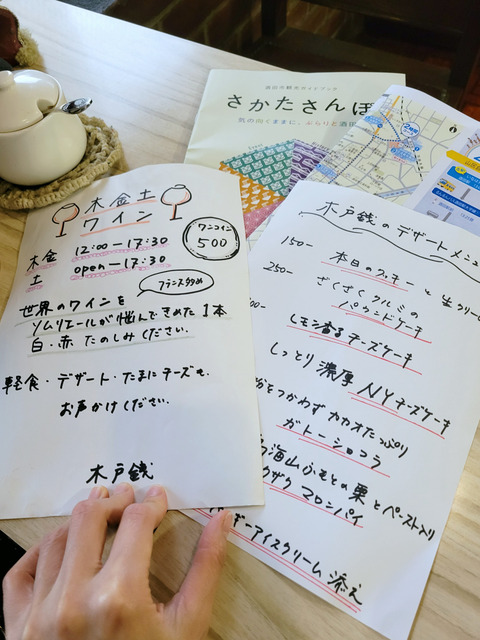 酒田市観光ガイドブック
さかたさんぽ
気の向くままに、ぶらりと酒田
木金土
ワイン
ワンコイン
500
木金 12:00ー17:30
土 open ー17:30
フランス多め
世界のワインを
ソムリエールが悩んできめた1本
白・赤 たのしみください.
軽食・デザート・たまにチーズも、
お声かけください.
木戸銭
木戸銭のデザートメニュ
150ー 本日のクッキーと生クリーム
250ー ざくざくクルミの
パウンドケーキ
レモン香るチーズケーキ
しっとり濃厚 NYチーズケーキ
をつかわず カカオたっぷり
ガトーショコラ
海山ふもとの栗とペースト入り
クザク マロンパイ
ーアイスクリーム 添え